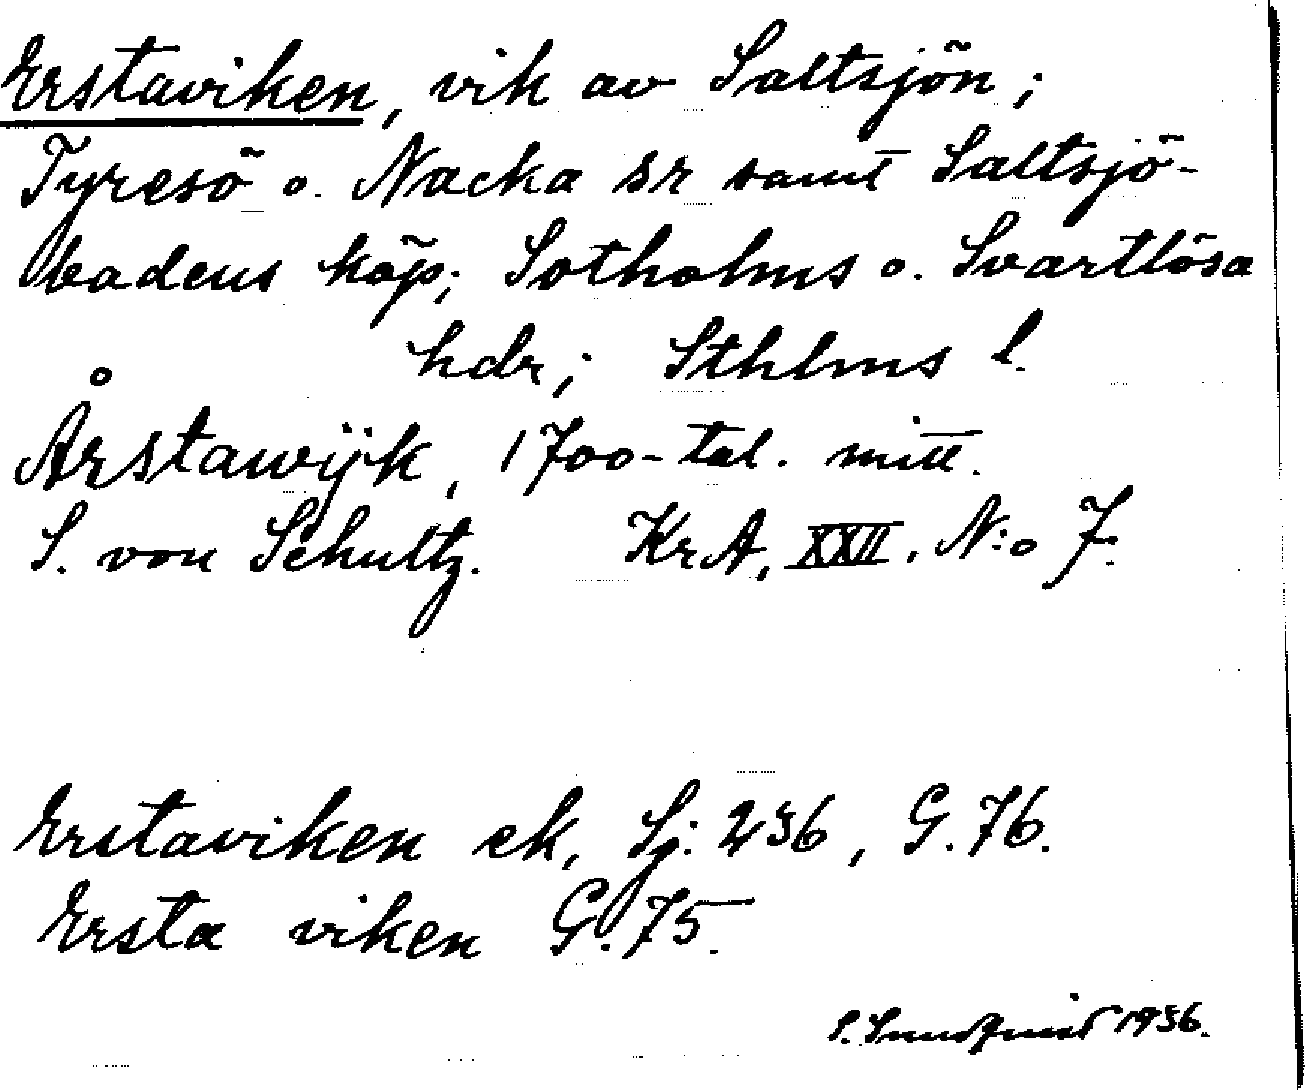 Erstaviken, vik av Saltsjön;
Tyresö o. Nacka sr samt Saltsjö-
badens köp; Sotholms o. Svartlösa
hdr; Sthlms l.
Årstawijk, 1700-tal. mitt.
S. von Schultz. KrA, XXII. N:o 7.
Erstaviken ek, Sj: 236, G. 76.
Ersta viken G. 75.
S. 1936.